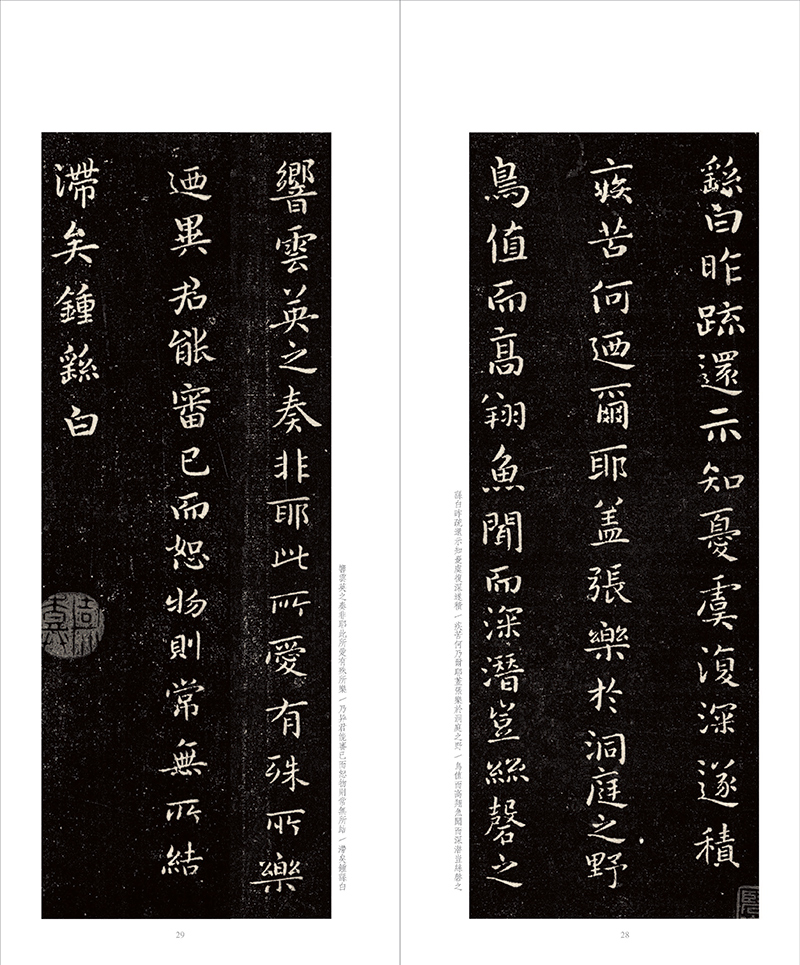 繇白昨疏還示知憂虞復深遂積
疾苦何迺爾耶盖張樂於洞庭之野
鳥值而高翔魚聞而深潛豈絲磬之
繇白昨疏還示知憂虞復深遂積｜疾苦何乃爾耶蓋張樂於洞庭之野｜鳥值而高翔魚聞而深潛豈絲磬之
28
響雲英之奏非耶此所愛有殊所樂
迺異君能審己而恕物則常無所結
滯矣鍾繇白
響雲英之奏非耶此所愛有殊所樂｜乃異君能審己而恕物則常無所結｜滯矣鍾繇白
29